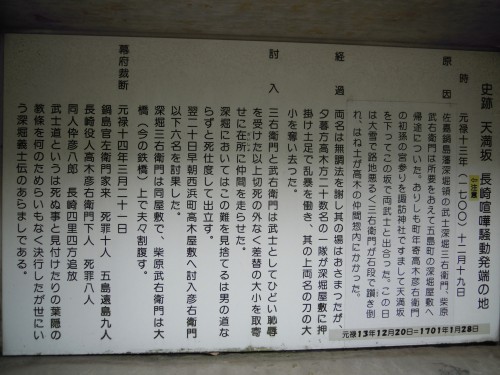 史跡 天満坂 長崎喧嘩騒動発端の地
時 元禄十三年(一七〇〇)十二月十九日
原因 佐嘉鍋島藩深堀領の武士深堀三右衛門、柴原
武右衛門は所要をおえて五島町の深堀屋敷へ
帰途についた。おりしも町年寄高木彦右衛門
の初孫の宮参りを諏訪神社ですまして天満坂
を下ってこの坂で両武士と出合った。この日
は大雪で路地悪るく三右衛門が石段で躓き倒
れ、はね土が高木の仲間惣内にかかった。
経過 両名は無調法を謝し其の場はおさまったが、
夕暮方高木方二十数名の一隊が深堀屋敷に押
掛け土足で乱暴を働き、其の上両名の刀の大
小を奪い去った。
討入 三右衛門と武右衛門は武士としてひどい恥辱
を受けた以上切死の外なく差替の大小を取寄
せに在所に仲間を走らせた。
深堀においてはこの難を見捨てるは男の道な
らずと死仕度して出立す。
翌二十日早朝西浜町高木屋敷へ討入彦右衛門
以下六名を討果した。
深堀三右衛門は同屋敷で、柴原武右衛門は大
橋(今の鉄橋)上で夫々割腹す。
幕府裁断 元禄十四年三月二十一日
鍋島官左衛門家来 死罪十人 五島遠島九人
長崎役人高木彦右衛門下人 死罪八人
同人伜彦八郎 長崎四里四方追放
武士道というは死ぬ事と見付けたりの葉隠の
教條を何のためらいもなく決行したが世にい
う深堀義士伝のあらましである。
元禄13年12月20日=1701年1月28日